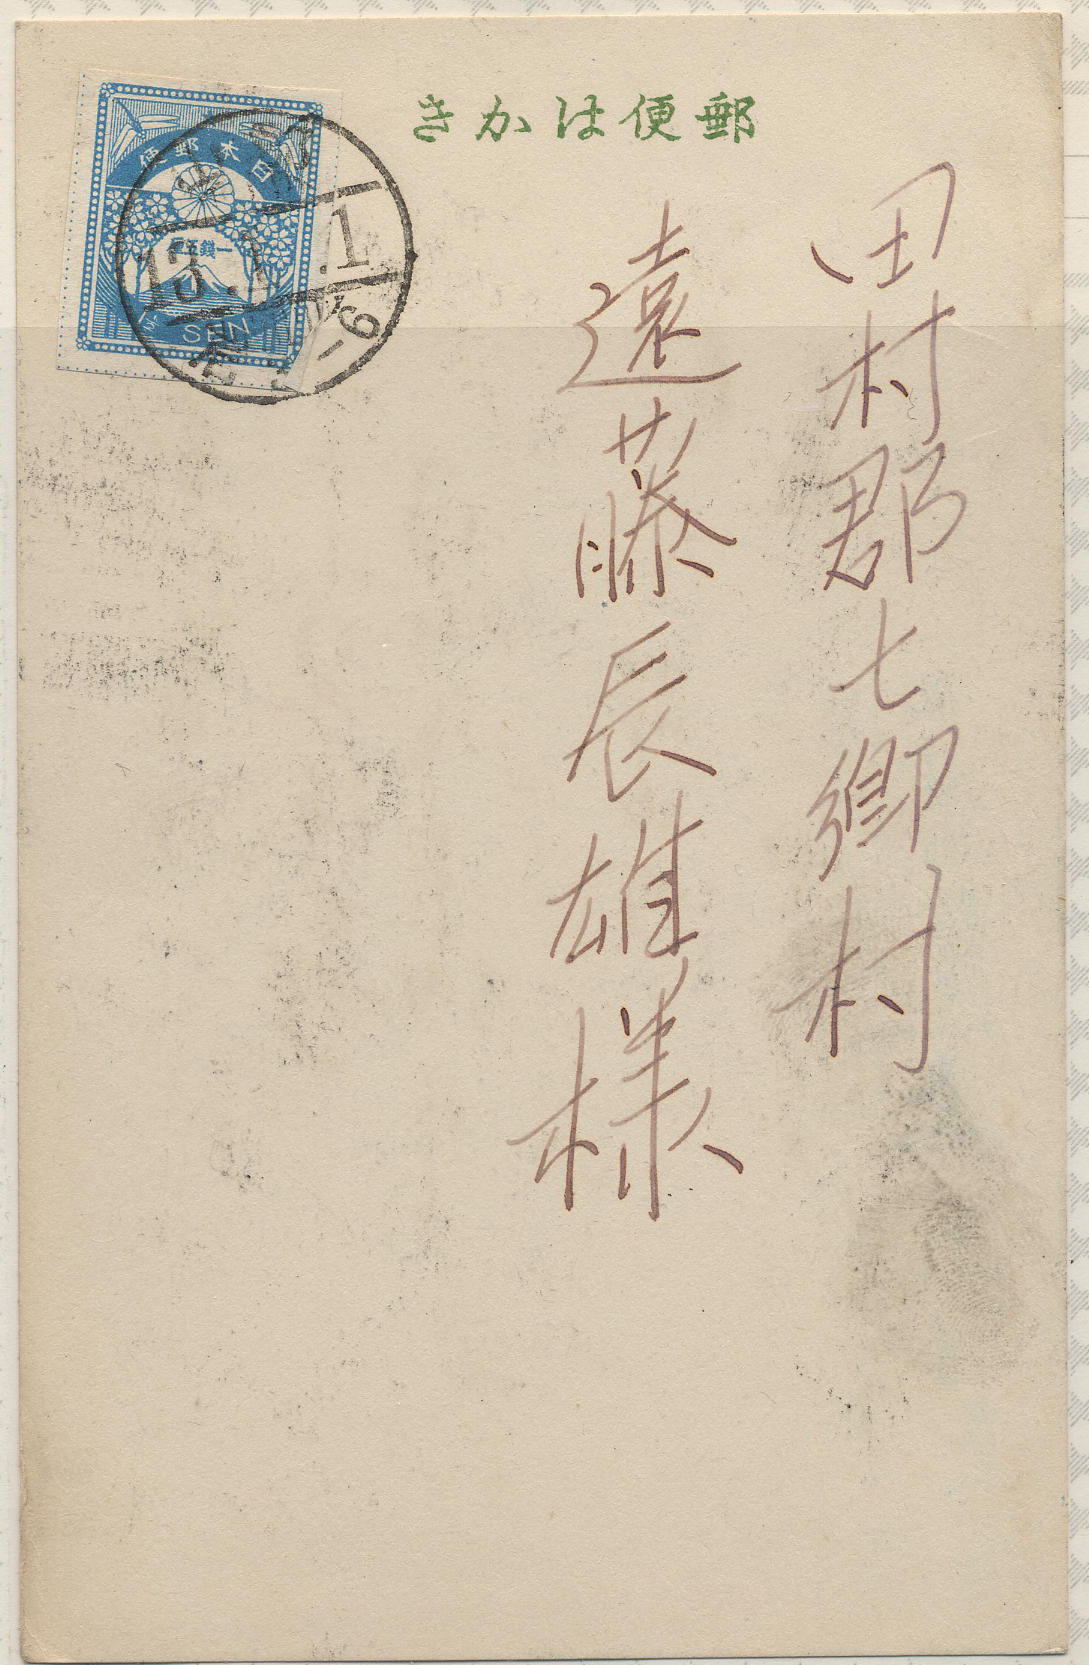 郵便はかき
田村郡七郷村
遠藤辰雄様
日本郵便
一銭五厘
1½ SEN
13.1.1